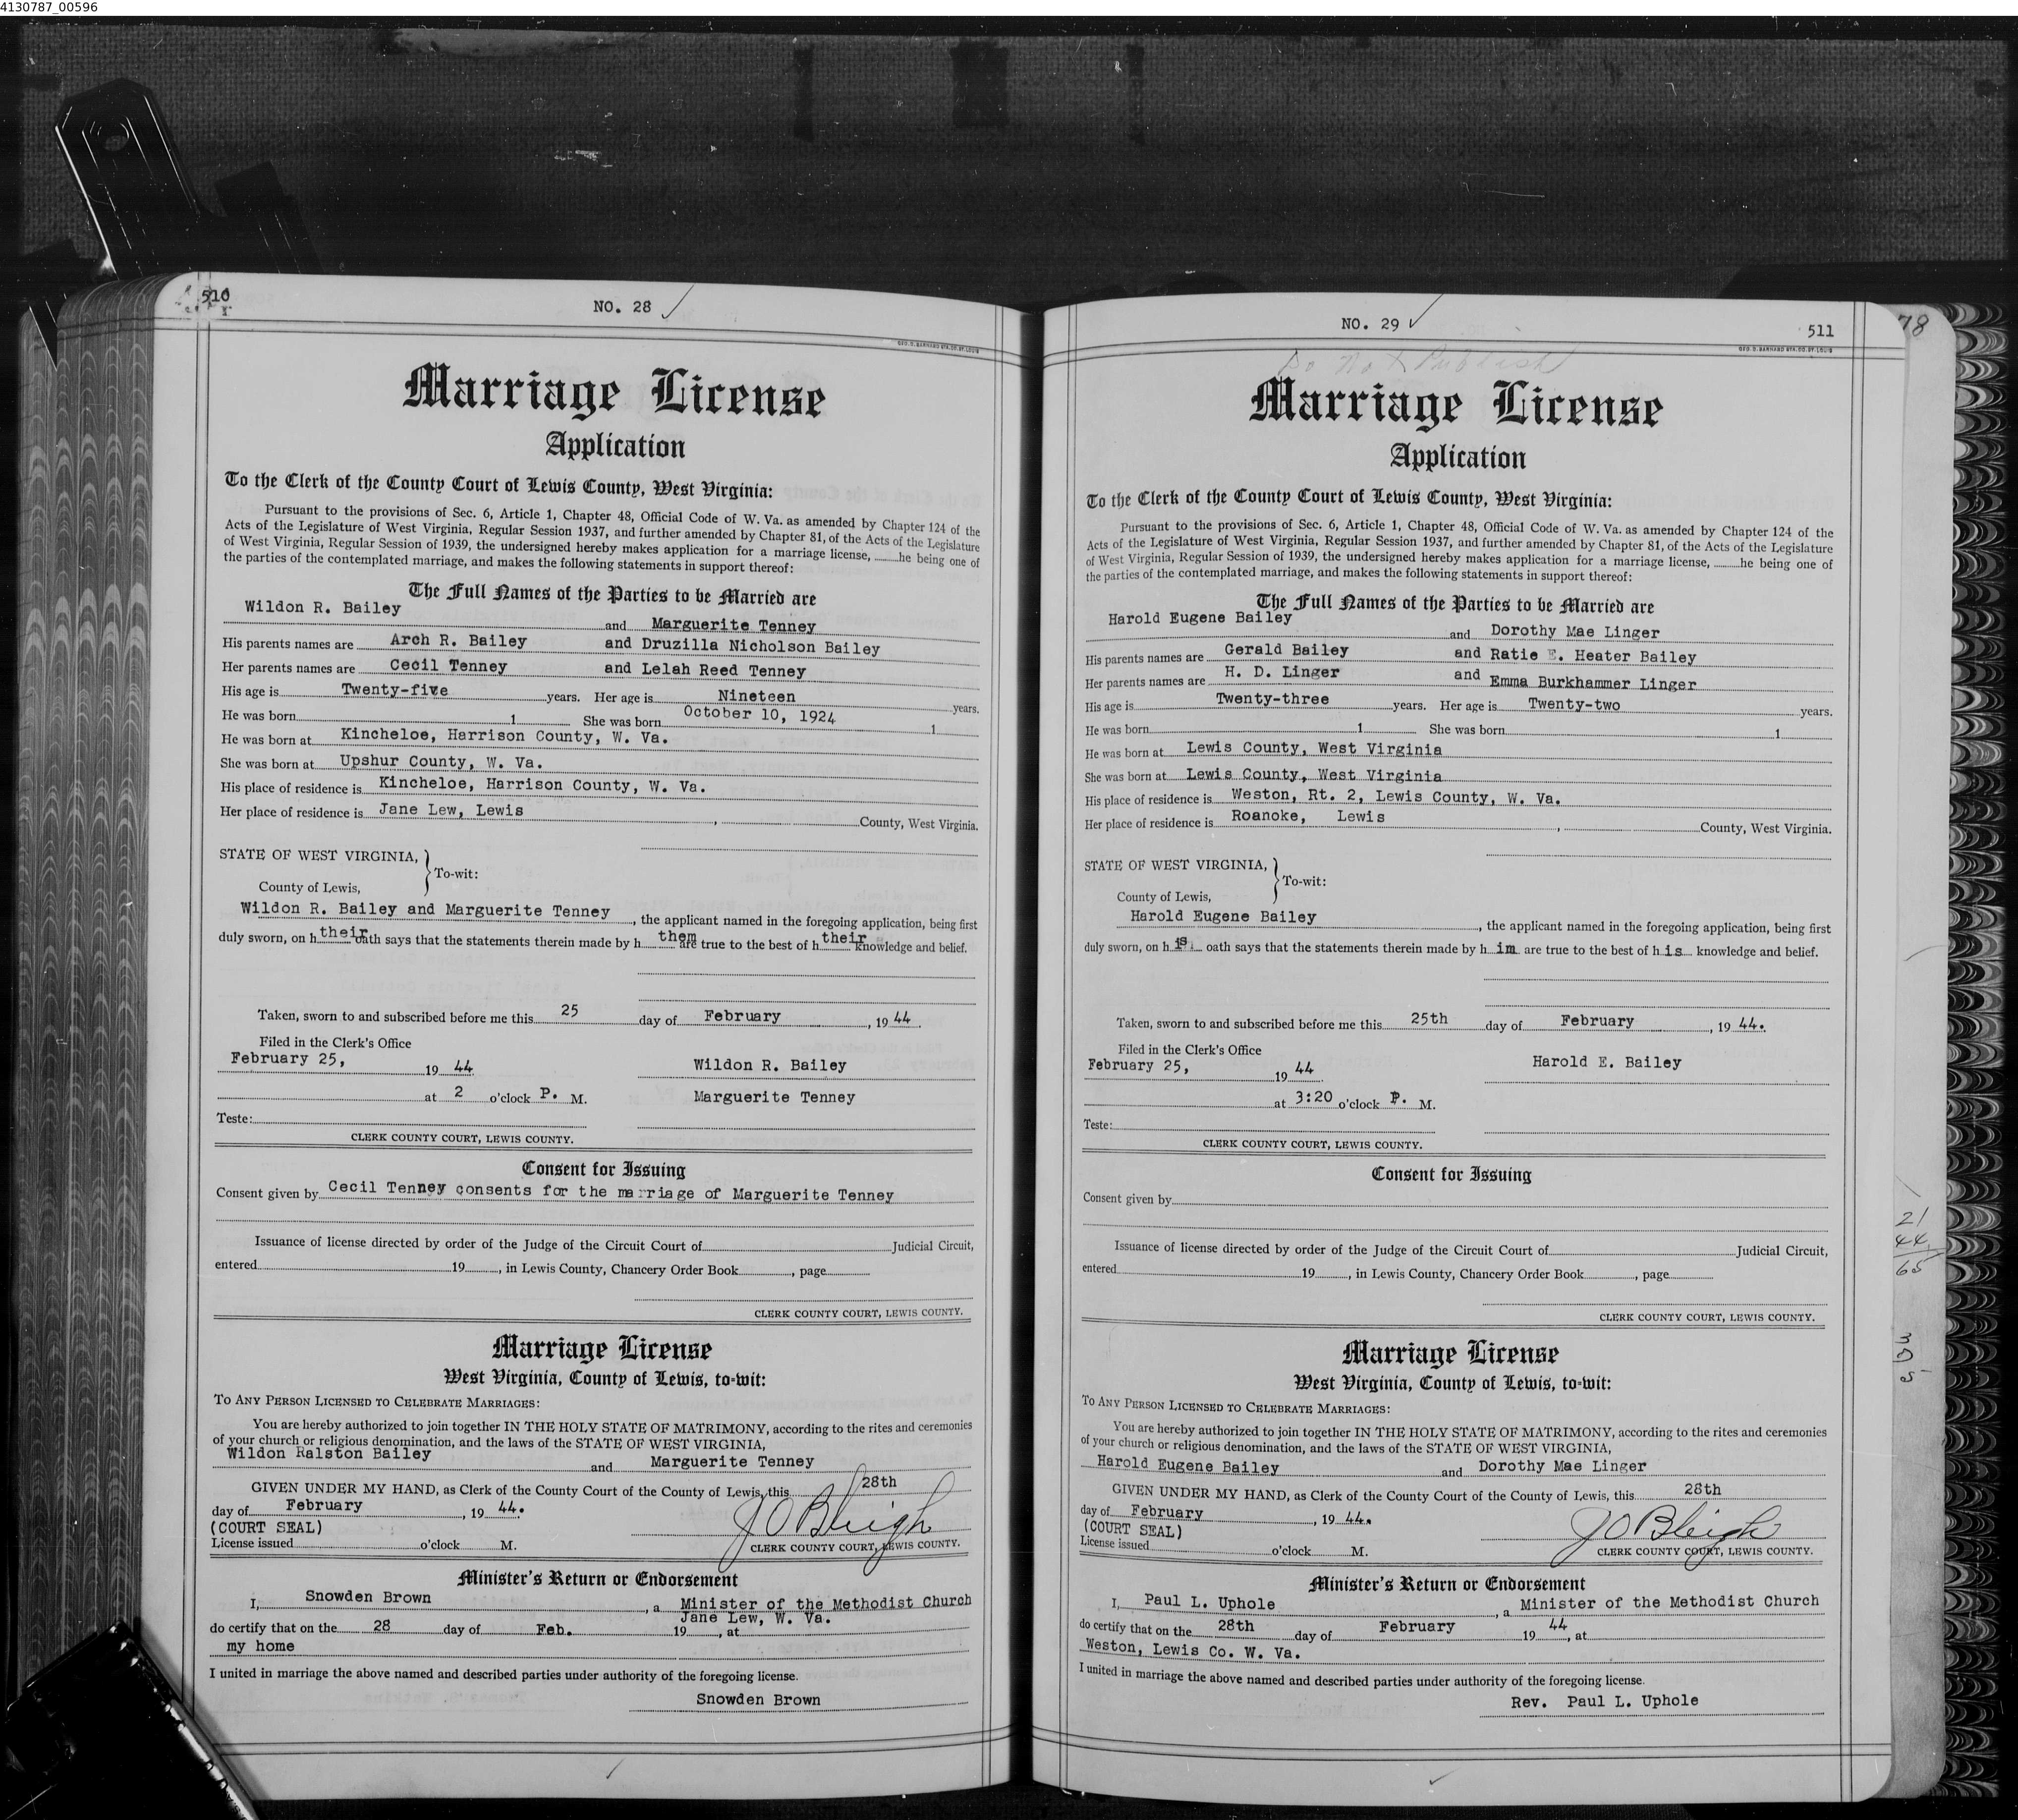 4130787_00596
510
NO. 28 ✓
GEO. D. BARNARD STA. CO. ST. LOUIS
Marriage License
Application
To the Clerk of the County Court of Lewis County, West Virginia:
Pursuant to the provisions of Sec. 6, Article 1, Chapter 48, Official Code of W. Va. as amended by Chapter 124 of the
Acts of the Legislature of West Virginia, Regular Session 1937, and further amended by Chapter 81, of the Acts of the Legislature
of West Virginia, Regular Session of 1939, the undersigned hereby makes application for a marriage license, he being one of
the parties of the contemplated marriage, and makes the following statements in support thereof:
The Full Names of the Parties to be Married are
Wildon R. Bailey and Marguerite Tenney
His parents names are Arch R. Bailey and Druzilla Nicholson Bailey
Her parents names are Cecil Tenney and Lelah Reed Tenney
His age is Twenty-five years. Her age is Nineteen years.
He was born 1 She was born October 10, 1924 1
He was born at Kincheloe, Harrison County, W. Va.
She was born at Upshur County, W. Va.
His place of residence is Kincheloe, Harrison County, W. Va.
Her place of residence is Jane Lew, Lewis , County, West Virginia.
STATE OF WEST VIRGINIA,
To-wit:
County of Lewis,
Wildon R. Bailey and Marguerite Tenney , the applicant named in the foregoing application, being first
duly sworn, on h their oath says that the statements therein made by h them are true to the best of h their knowledge and belief.
Taken, sworn to and subscribed before me this 25 day of February , 19 44 .
Filed in the Clerk's Office
February 25, 19 44 Wildon R. Bailey
at 2 o'clock P. M. Marguerite Tenney
Teste:
CLERK COUNTY COURT, LEWIS COUNTY.
Consent for Issuing
Consent given by Cecil Tenney consents for the marriage of Marguerite Tenney
Issuance of license directed by order of the Judge of the Circuit Court of Judicial Circuit,
entered 19 , in Lewis County, Chancery Order Book , page
CLERK COUNTY COURT, LEWIS COUNTY.
Marriage License
West Virginia, County of Lewis, to-wit:
TO ANY PERSON LICENSED TO CELEBRATE MARRIAGES:
You are hereby authorized to join together IN THE HOLY STATE OF MATRIMONY, according to the rites and ceremonies
of your church or religious denomination, and the laws of the STATE OF WEST VIRGINIA,
Wildon Ralston Bailey and Marguerite Tenney
GIVEN UNDER MY HAND, as Clerk of the County Court of the County of Lewis, this 28th
day of February , 19 44.
(COURT SEAL) J O Bleigh
License issued o'clock M. CLERK COUNTY COURT, LEWIS COUNTY.
Minister's Return or Endorsement
I, Snowden Brown , a Minister of the Methodist Church
Jane Lew, W. Va.
do certify that on the 28 day of Feb. 19 , at
my home
I united in marriage the above named and described parties under authority of the foregoing license.
Snowden Brown
✓
NO. 29 ✓
511
78
GEO. D. BARNARD STA. CO. ST. LOUIS
Do Not Publish
Marriage License
Application
To the Clerk of the County Court of Lewis County, West Virginia:
Pursuant to the provisions of Sec. 6, Article 1, Chapter 48, Official Code of W. Va. as amended by Chapter 124 of the
Acts of the Legislature of West Virginia, Regular Session 1937, and further amended by Chapter 81, of the Acts of the Legislature
of West Virginia, Regular Session of 1939, the undersigned hereby makes application for a marriage license, he being one of
the parties of the contemplated marriage, and makes the following statements in support thereof:
The Full Names of the Parties to be Married are
Harold Eugene Bailey and Dorothy Mae Linger
His parents names are Gerald Bailey and Ratie E. Heater Bailey
Her parents names are H. D. Linger and Emma Burkhammer Linger
His age is Twenty-three years. Her age is Twenty-two years.
He was born 1 She was born 1
He was born at Lewis County, West Virginia
She was born at Lewis County, West Virginia
His place of residence is Weston, Rt. 2, Lewis County, W. Va.
Her place of residence is Roanoke, Lewis , County, West Virginia.
STATE OF WEST VIRGINIA,
To-wit:
County of Lewis,
Harold Eugene Bailey , the applicant named in the foregoing application, being first
duly sworn, on h is oath says that the statements therein made by h im are true to the best of h is knowledge and belief.
Taken, sworn to and subscribed before me this 25th day of February , 19 44.
Filed in the Clerk's Office
February 25, 19 44 Harold E. Bailey
at 3:20 o'clock P. M.
Teste:
CLERK COUNTY COURT, LEWIS COUNTY.
Consent for Issuing
Consent given by
Issuance of license directed by order of the Judge of the Circuit Court of Judicial Circuit,
entered 19 , in Lewis County, Chancery Order Book , page
CLERK COUNTY COURT, LEWIS COUNTY.
Marriage License
West Virginia, County of Lewis, to-wit:
TO ANY PERSON LICENSED TO CELEBRATE MARRIAGES:
You are hereby authorized to join together IN THE HOLY STATE OF MATRIMONY, according to the rites and ceremonies
of your church or religious denomination, and the laws of the STATE OF WEST VIRGINIA,
Harold Eugene Bailey and Dorothy Mae Linger
GIVEN UNDER MY HAND, as Clerk of the County Court of the County of Lewis, this 28th
day of February , 19 44.
(COURT SEAL) J O Bleigh
License issued o'clock M. CLERK COUNTY COURT, LEWIS COUNTY.
Minister's Return or Endorsement
I, Paul L. Uphole , a Minister of the Methodist Church
do certify that on the 28th day of February 19 44 , at
Weston, Lewis Co. W. Va.
I united in marriage the above named and described parties under authority of the foregoing license.
Rev. Paul L. Uphole
✓
21
44
65